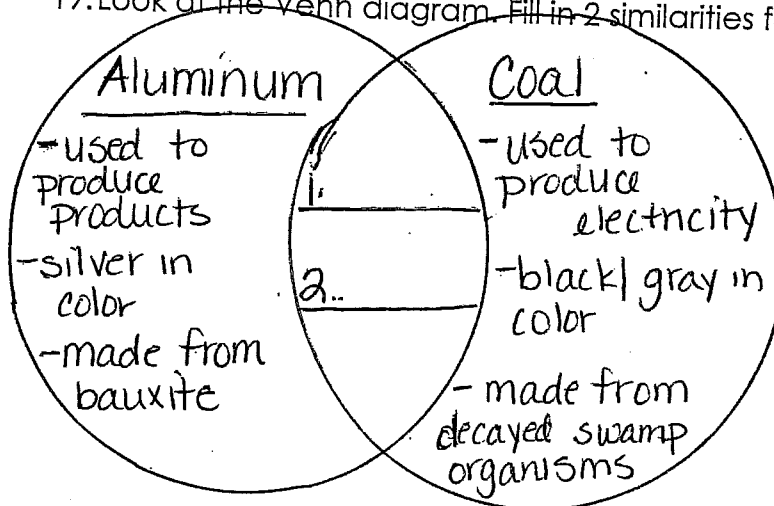 17. Look at the Venn diagram. Fill in 2 similarities f
Aluminum
-used to
produce
products
-silver in
color
-made from
bauxite
1.
2..
Coal
-used to
produce
electricity
-black/gray in
color
- made from
decayed swamp
organisms